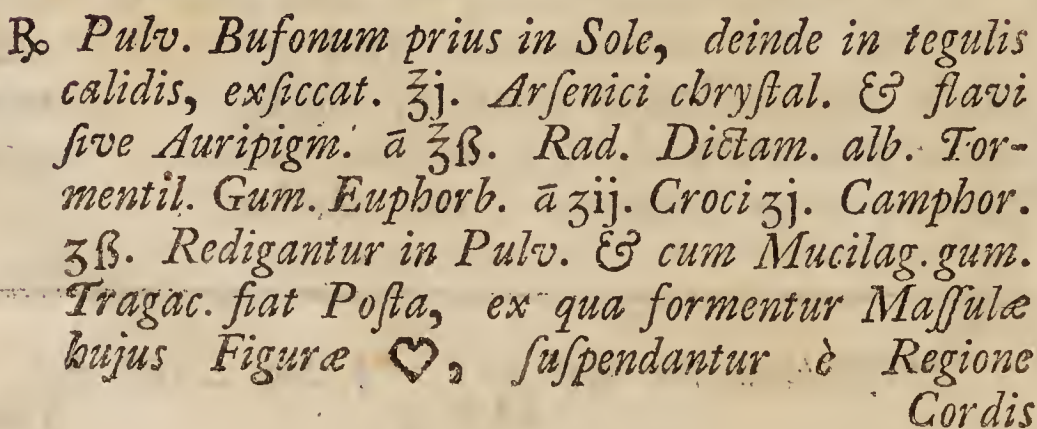 ℞ Pulv. Bufonum prius in Sole, deinde in tegulis
calidis, exſiccat. ℥j. Arſenici chryſtal. & flavi
ſive Auripigm. ā ℥ß. Rad. Dictam. alb. Tor-
mentil. Gum. Euphorb. ā ʒij. Croci ʒj. Camphor.
ʒß. Redigantur in Pulv. & cum Mucilag. gum.
Tragac. fiat Poſta, ex qua formentur Maſſulæ
hujus Figuræ ♡, ſuſpendantur è Regione
Cordis